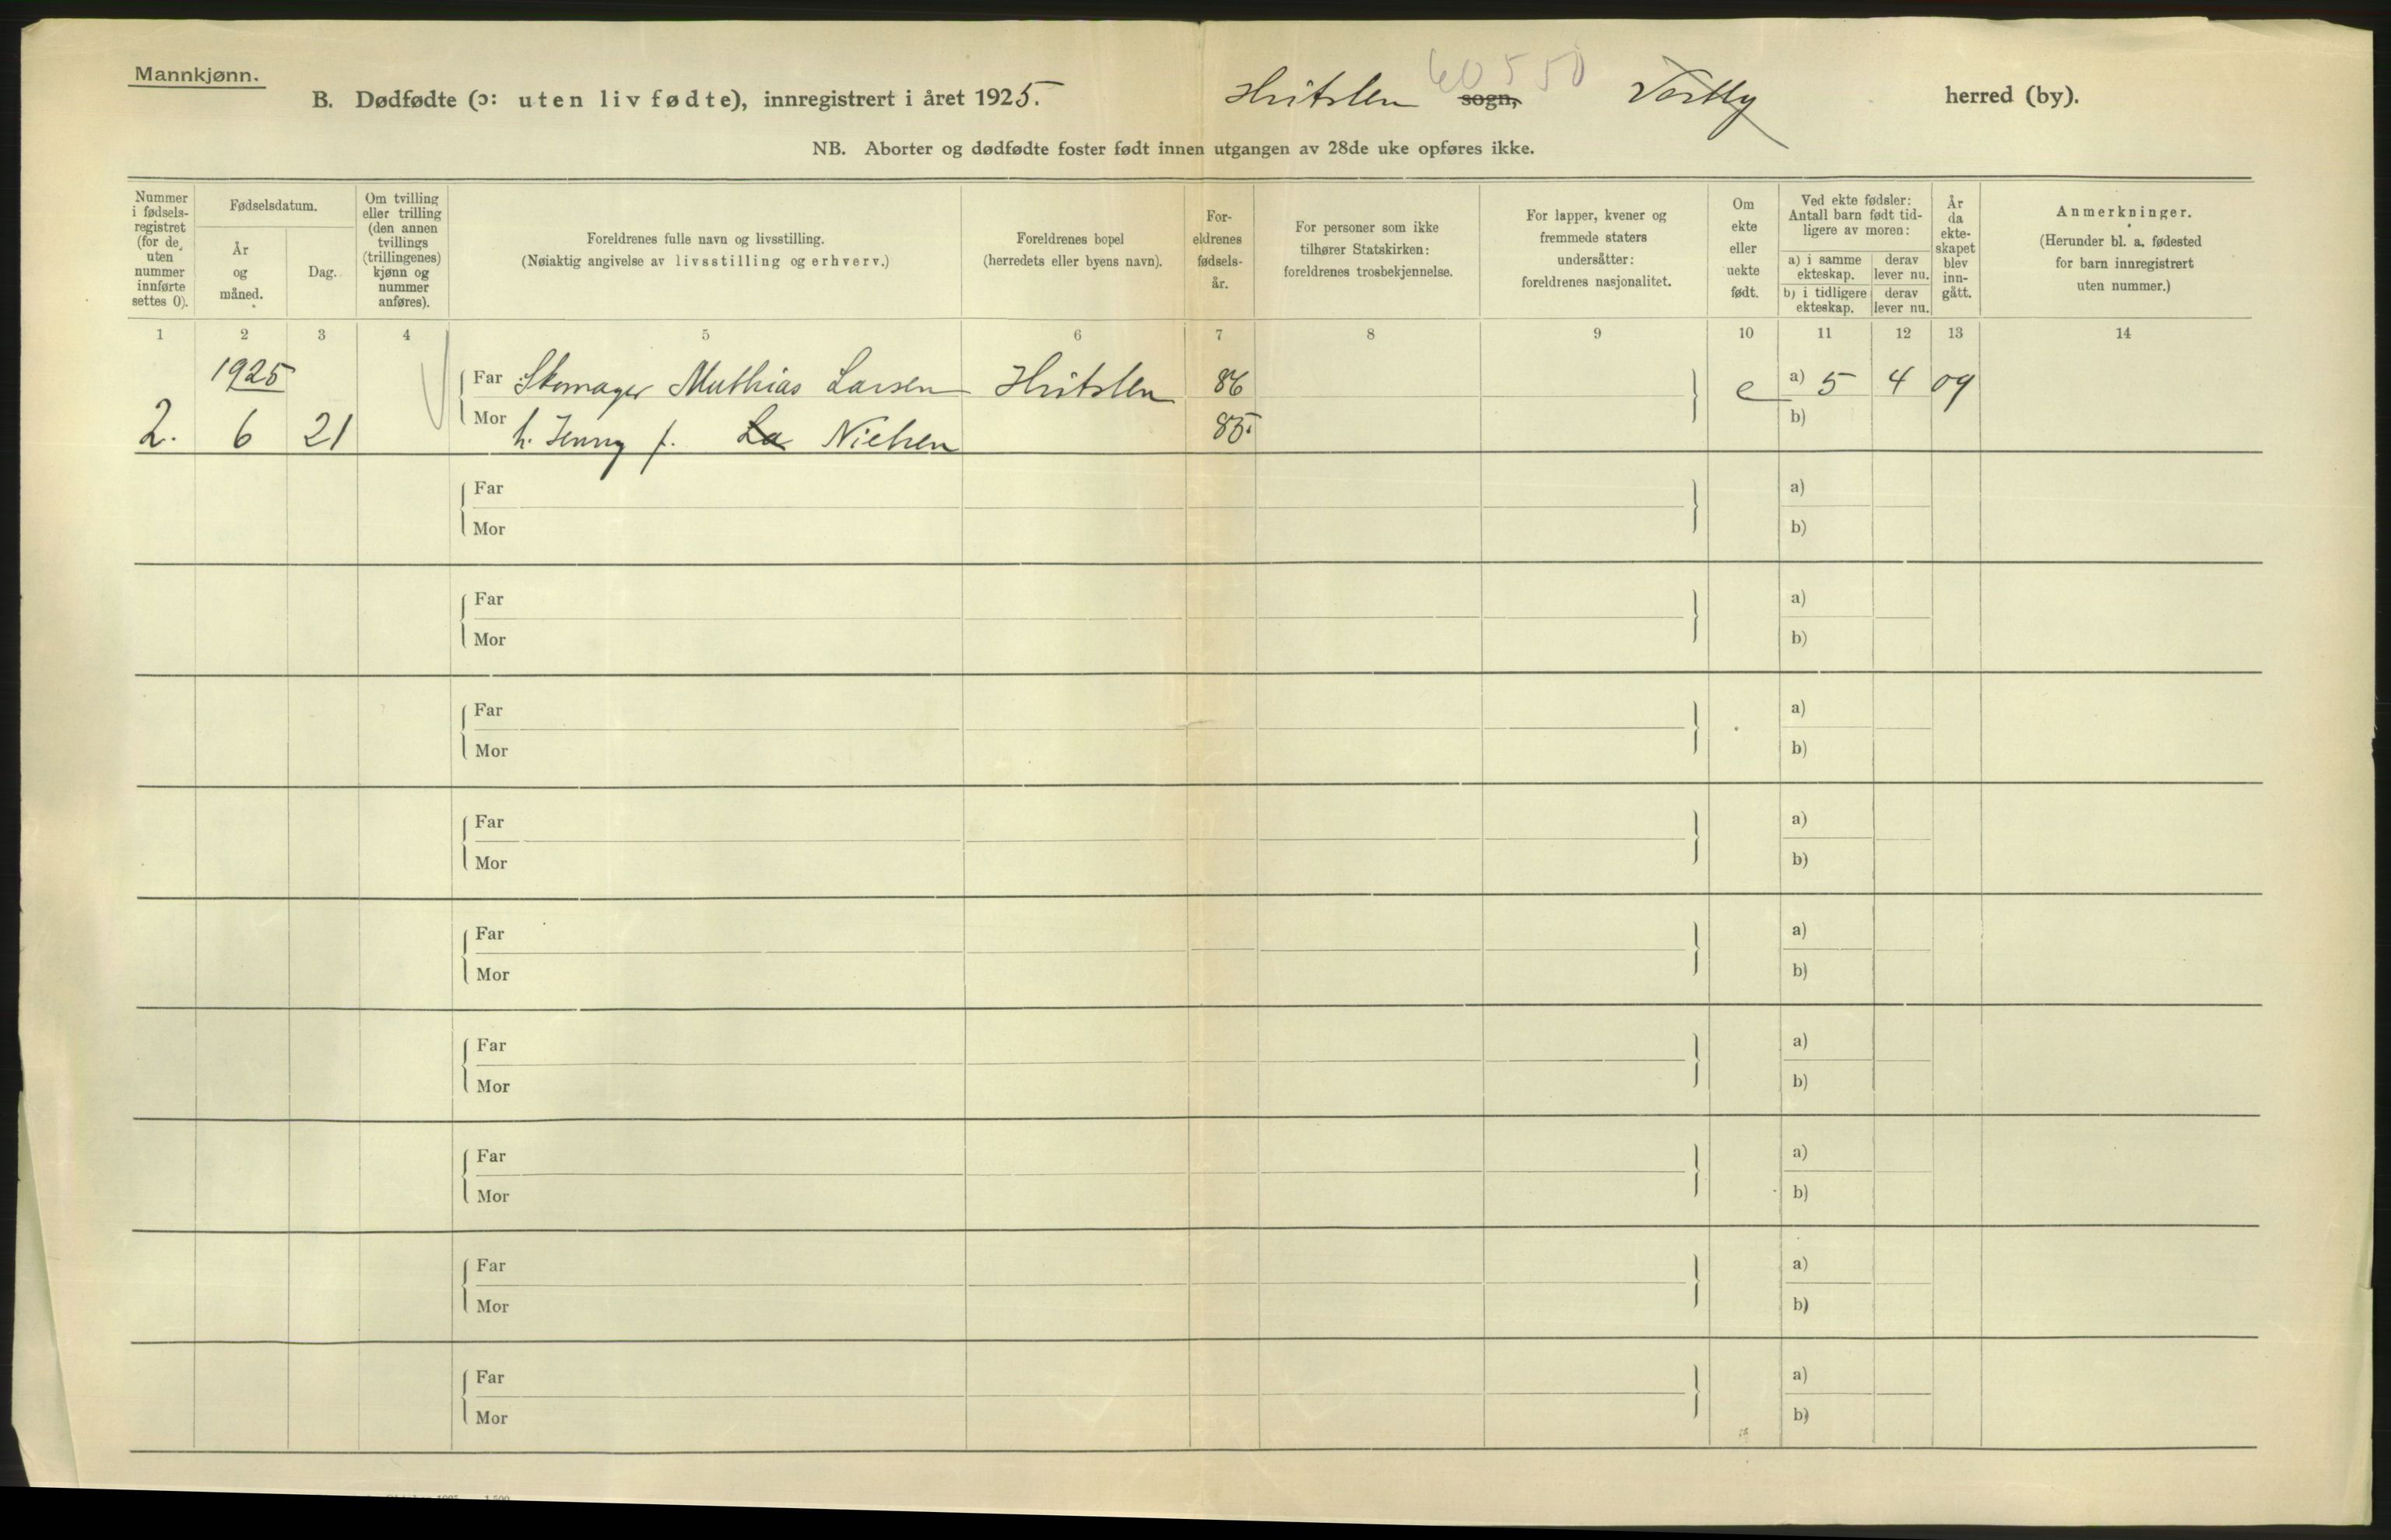 Mannkjønn.
B. Dødfødte (ɔ: uten liv fødte), innregistrert i året 1925. Hvitsten sogn, herred (by).
60 5 50
NB. Aborter og dødfødte foster født innen utgangen av 28de uke opføres ikke.
Nummer i fødsels- registret (for de uten nummer innførte settes 0).
Fødselsdatum.
År og måned.
Dag.
Om tvilling eller trilling (den annen tvillings (trillingenes) kjønn og nummer anføres).
Foreldrenes fulle navn og livsstilling.
(Nøiaktig angivelse av livsstilling og erhverv.)
Foreldrenes bopel
(herredets eller byens navn).
For- eldrenes fødsels- år.
For personer som ikke tilhører Statskirken: foreldrenes trosbekjennelse.
For lapper, kvener og fremmede staters undersåtter: foreldrenes nasjonalitet.
Om ekte eller uekte født.
Ved ekte fødsler: Antall barn født tid- ligere av moren:
a) i samme ekteskap.
derav lever nu.
b) i tidligere ekteskap.
derav lever nu.
År da ekte- skapet blev inn- gått.
Anmerkninger.
(Herunder bl. a. fødested for barn innregistrert uten nummer.)
1 2 3 4 5 6 7 8 9 10 11 12 13 14
1925
Far Skomager Mathias Larsen Hvitsten 86 e a) 5 4 09
2. 6 21 Mor h. Jenny f. La Nielsen 85. b)
Far a)
Mor b)
Far a)
Mor b)
Far a)
Mor b)
Far a)
Mor b)
Far a)
Mor b)
Far a)
Mor b)
Far a)
Mor b)
Far a)
Mor b)
Far a)
Mor b)